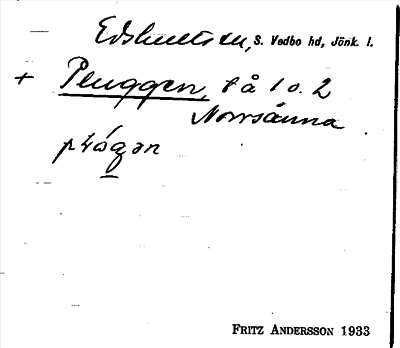 Edshults sn, S. Vedbo hd, Jönk. l.
+ Pluggen, på 1 o. 2
Norrsånna
plógən
FRITZ ANDERSSON 1933